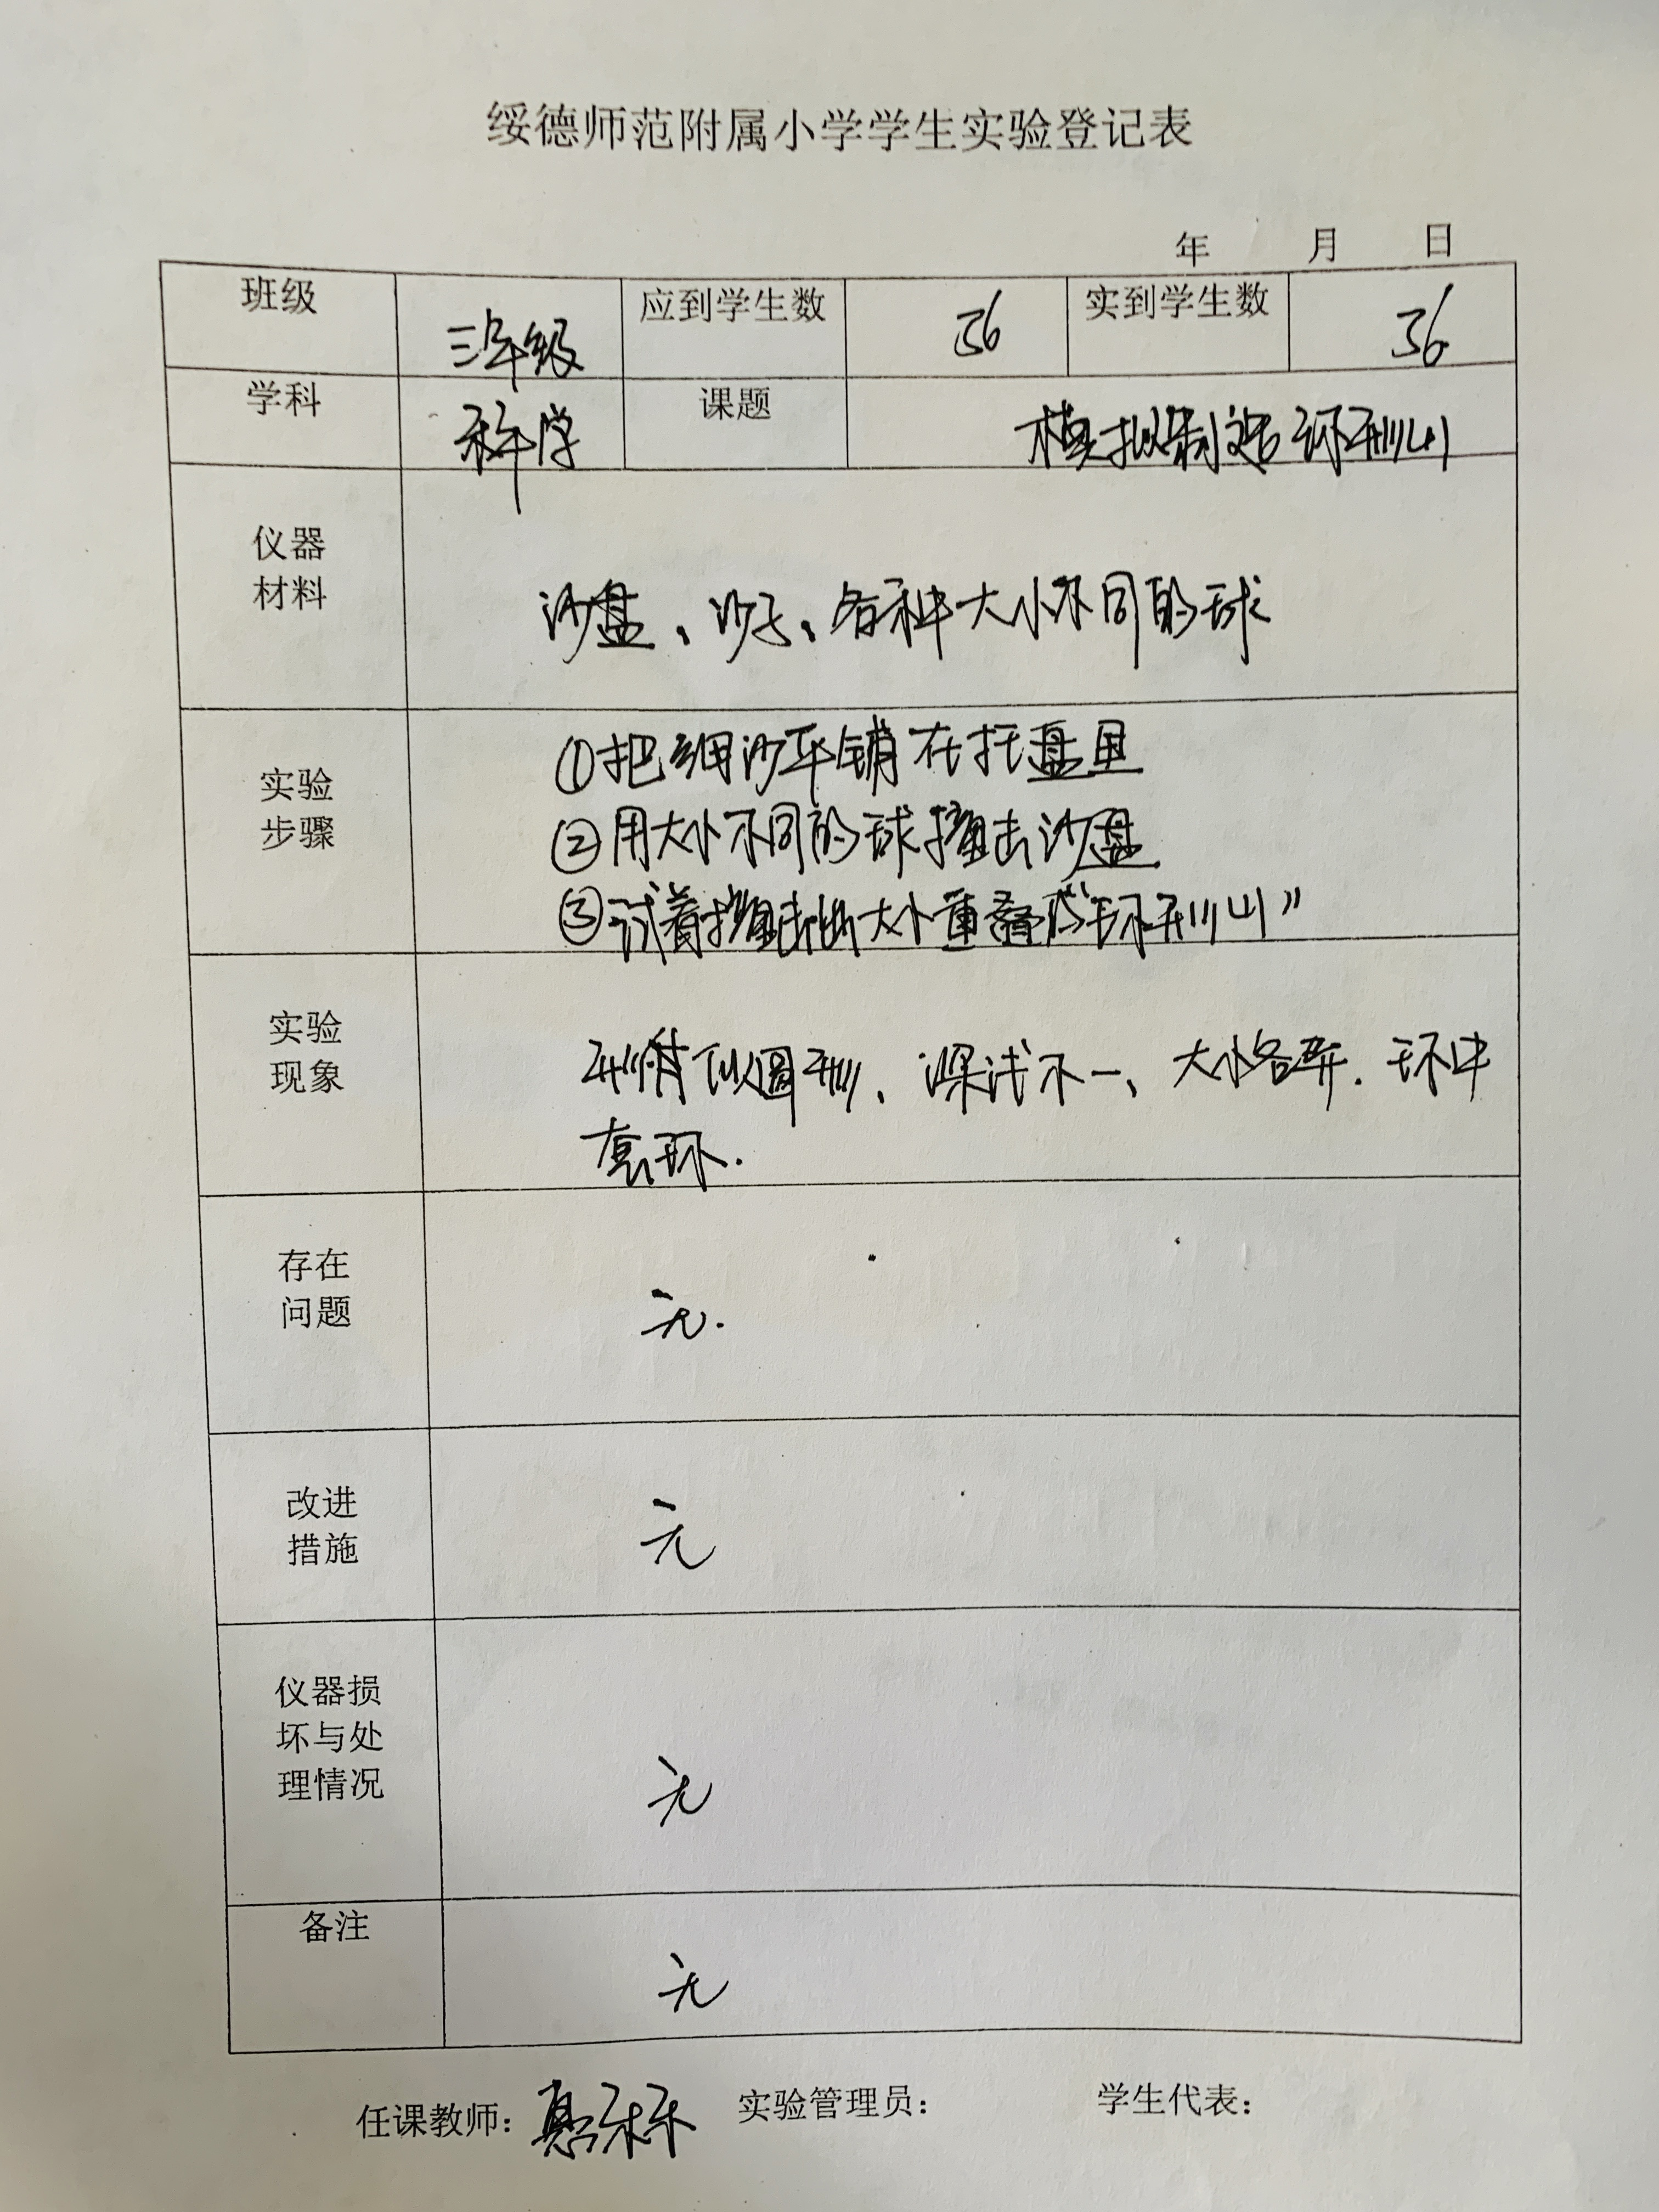 绥德师范附属小学学生实验登记表
年 月 日
班级 三年级 应到学生数 36 实到学生数 36
学科 科学 课题 模拟制造环形山
仪器
材料
沙盘、沙子、各种大小不同的球
实验
步骤
①把细沙平铺在托盘里
②用大小不同的球撞击沙盘
③试着撞击出大小重叠的“环形山”
实验
现象
形状似圆形、深浅不一、大小各异.环中
套环.
存在
问题
无.
改进
措施
无
仪器损
坏与处
理情况
无
备注
无
任课教师: 实验管理员: 学生代表: